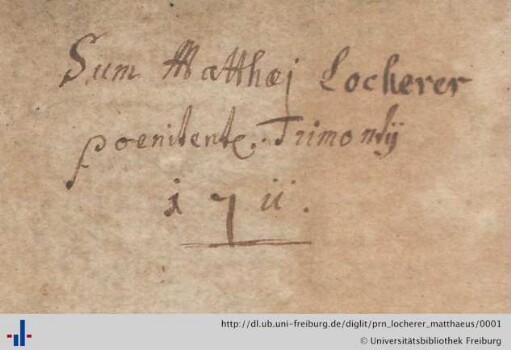 Sum Matthæj Locherer
poenitent. Trimontij
1711.
http://dl.ub.uni-freiburg.de/diglit/prn_locherer_matthaeus/0001
© Universitätsbibliothek Freiburg